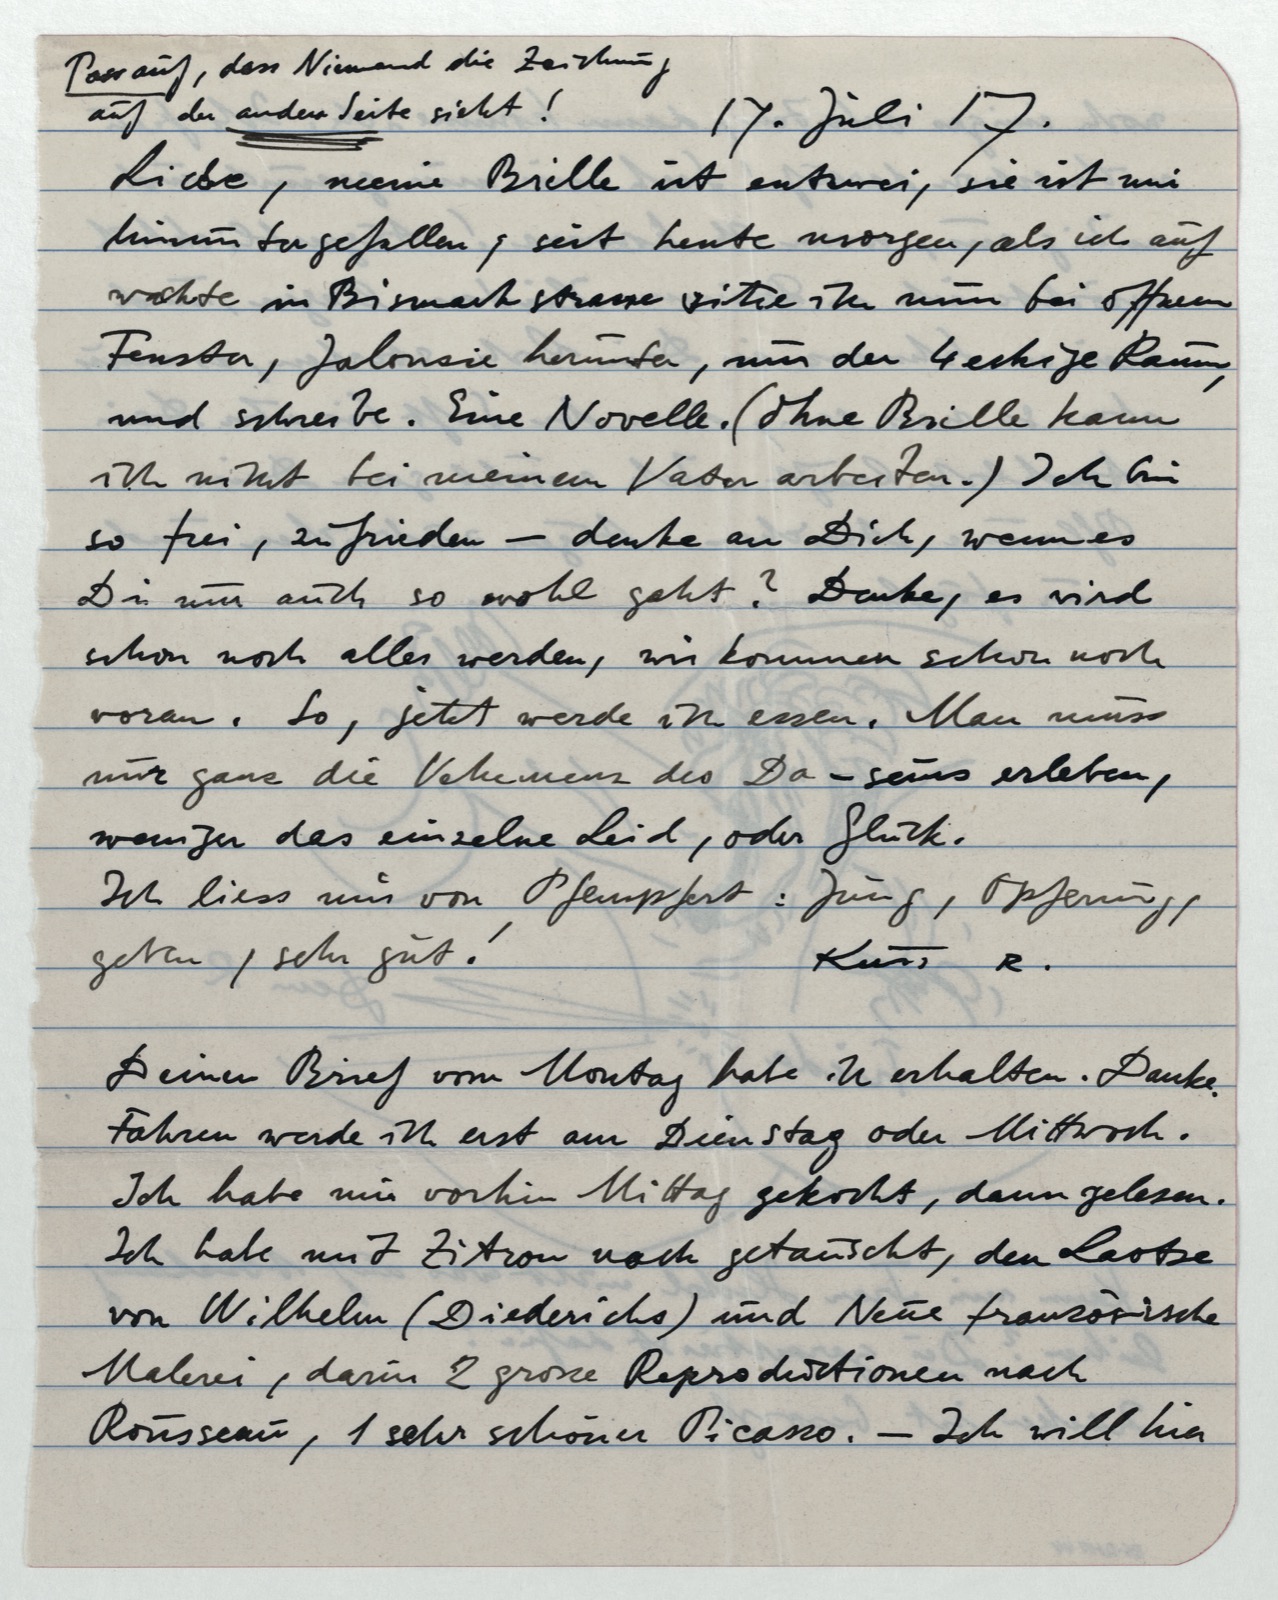 Pass auf, dass Niemand die Zeichnung
auf der andern Seite sieht!
17. Juli 17.
Liebe, meine Brille ist entzwei, sie ist mir
hinuntergefallen, seit heute morgen, als ich auf
wachte in Bismarckstrasse sitze ich nun bei offnem
Fenster, Jalousie herunter, nun der 4eckige Raum,
und schreibe. Eine Novelle. (Ohne Brille kann
ich nicht bei meinem Vater arbeiten.) Ich bin
so frei, zufrieden — denke an Dich, wenn es
Dir nun auch so wohl geht? Danke, es wird
schon noch alles werden, wir kommen schon noch
voran. So, jetzt werde ich essen. Man muss
nur ganz die Vehemenz des Da-seins erleben,
weniger das einzelne Leid, oder Glück.
Ich liess mir von Pfempfert: Jung, Opferung,
geben, sehr gut!
Kuss R.
Deinen Brief vom Montag habe ich erhalten. Danke.
Fahren werde ich erst am Dienstag oder Mittwoch.
Ich habe mir vorhin Mittag gekocht, dann gelesen.
Ich habe mit Zitron noch getauscht, den Laotse
von Wilhelm (Diederichs) und Neue französische
Malerei, darin 2 grosse Reproductionen nach
Rousseau, 1 sehr schöner Picasso. — Ich will hier